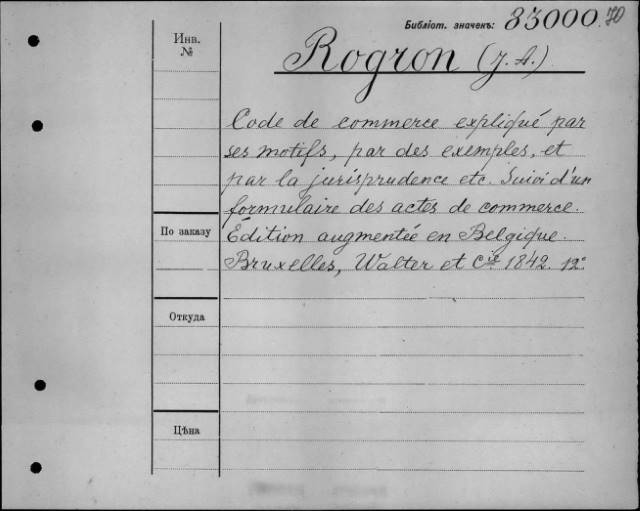 Библіот. значекъ: 33000.70
Инв.
№
Rogron (J. A.)
Code de commerce expliqué par
ses motifs, par des exemples, et
par la jurisprudence etc. Suivi d'un
formulaire des actes de commerce.
По заказу
Édition augmentée en Belgique.
Bruxelles, Walter et Cie 1842. 12°
Откуда
Цѣна